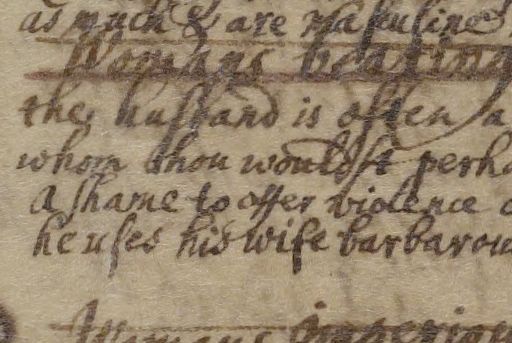 as much & are masculine
Womans beating
the husband is often a
whom thou wouldst perh
A shame to offer violence
he uses his wife barbarou
Womans imperiou